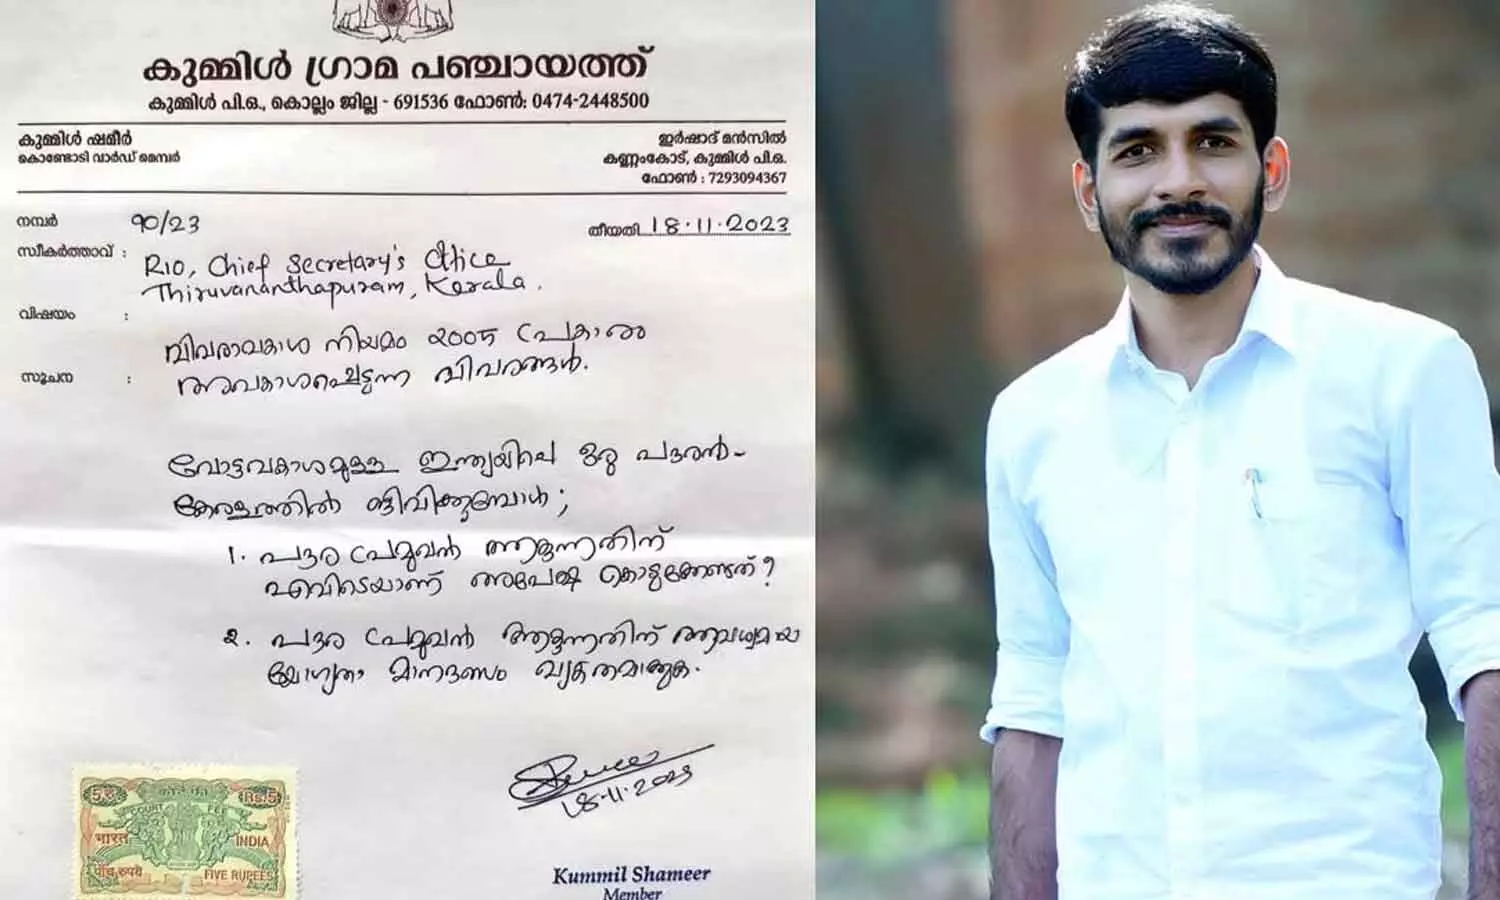 കുമ്മിൾ ഗ്രാമ പഞ്ചായത്ത്
കുമ്മിൾ പി.ഒ., കൊല്ലം ജില്ല - 691536 ഫോൺ: 0474-2448500
കുമ്മിൾ ഷമീർ
കൊണ്ടോടി വാർഡ് മെമ്പർ
ഇർഷാദ് മൻസിൽ
കണ്ണംകോട്, കുമ്മിൾ പി.ഒ.
ഫോൺ : 7293094367
നമ്പർ 90/23
തീയതി 18.11.2023
സ്വീകർത്താവ് : RIO, Chief Secretary's Office
Thiruvananthapuram, Kerala.
വിഷയം :
വിവരാവകാശ നിയമം 2005 പ്രകാരം
സൂചന :
അവകാശപ്പെടുന്ന വിവരങ്ങൾ.
വോട്ടവകാശമുള്ള ഇന്ത്യയിലെ ഒരു പൗരൻ-
കേരളത്തിൽ ജീവിക്കുമ്പോൾ;
1. പൗര പ്രമുഖൻ ആകുന്നതിന്
എവിടെയാണ് അപേക്ഷ കൊടുക്കേണ്ടത്?
2. പൗര പ്രമുഖൻ ആകുന്നതിന് ആവശ്യമായ
യോഗ്യതാ മാനദണ്ഡം വ്യക്തമാക്കുക.
18.11.2023
5रु कोर्ट फी Rs.5
COURT FEE
भारत INDIA
पाँच रुपये FIVE RUPEES
Kummil Shameer
Member